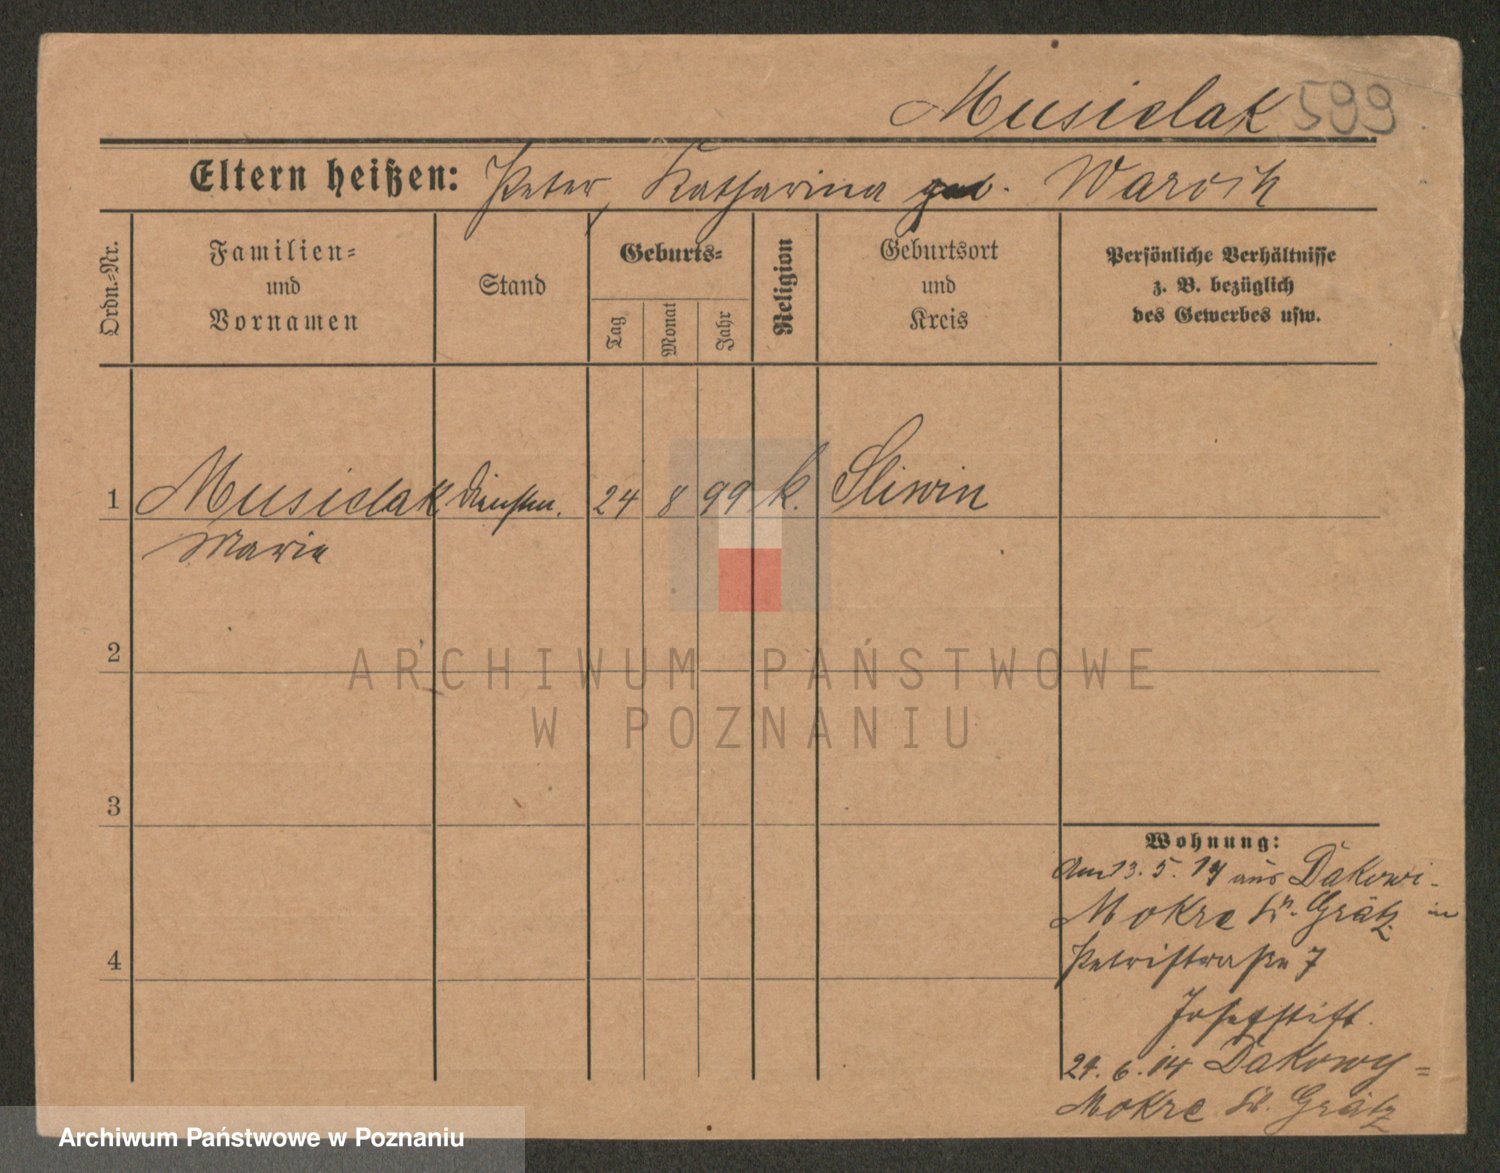 Musielak 599
Eltern heißen: Peter, Katharina geb. Warosik
Ordn.-Nr.
Familien-
und
Vornamen
Stand
Geburts-
Tag
Monat
Jahr
Religion
Geburtsort
und
Kreis
Persönliche Verhältnisse
z. B. bezüglich
des Gewerbes usw.
1 Musielak 24 8 99 k. Sliwin
Marie
2
3
4
Wohnung:
Am 13. 5. 14 aus Dakowi-
Mokre Kr. Grätz in
Petristraße 7
Josefstift.
24. 6. 14 Dakowy-
Mokre Kr. Grätz
ARCHIWUM PAŃSTWOWE
W POZNANIU
Archiwum Państwowe w Poznaniu